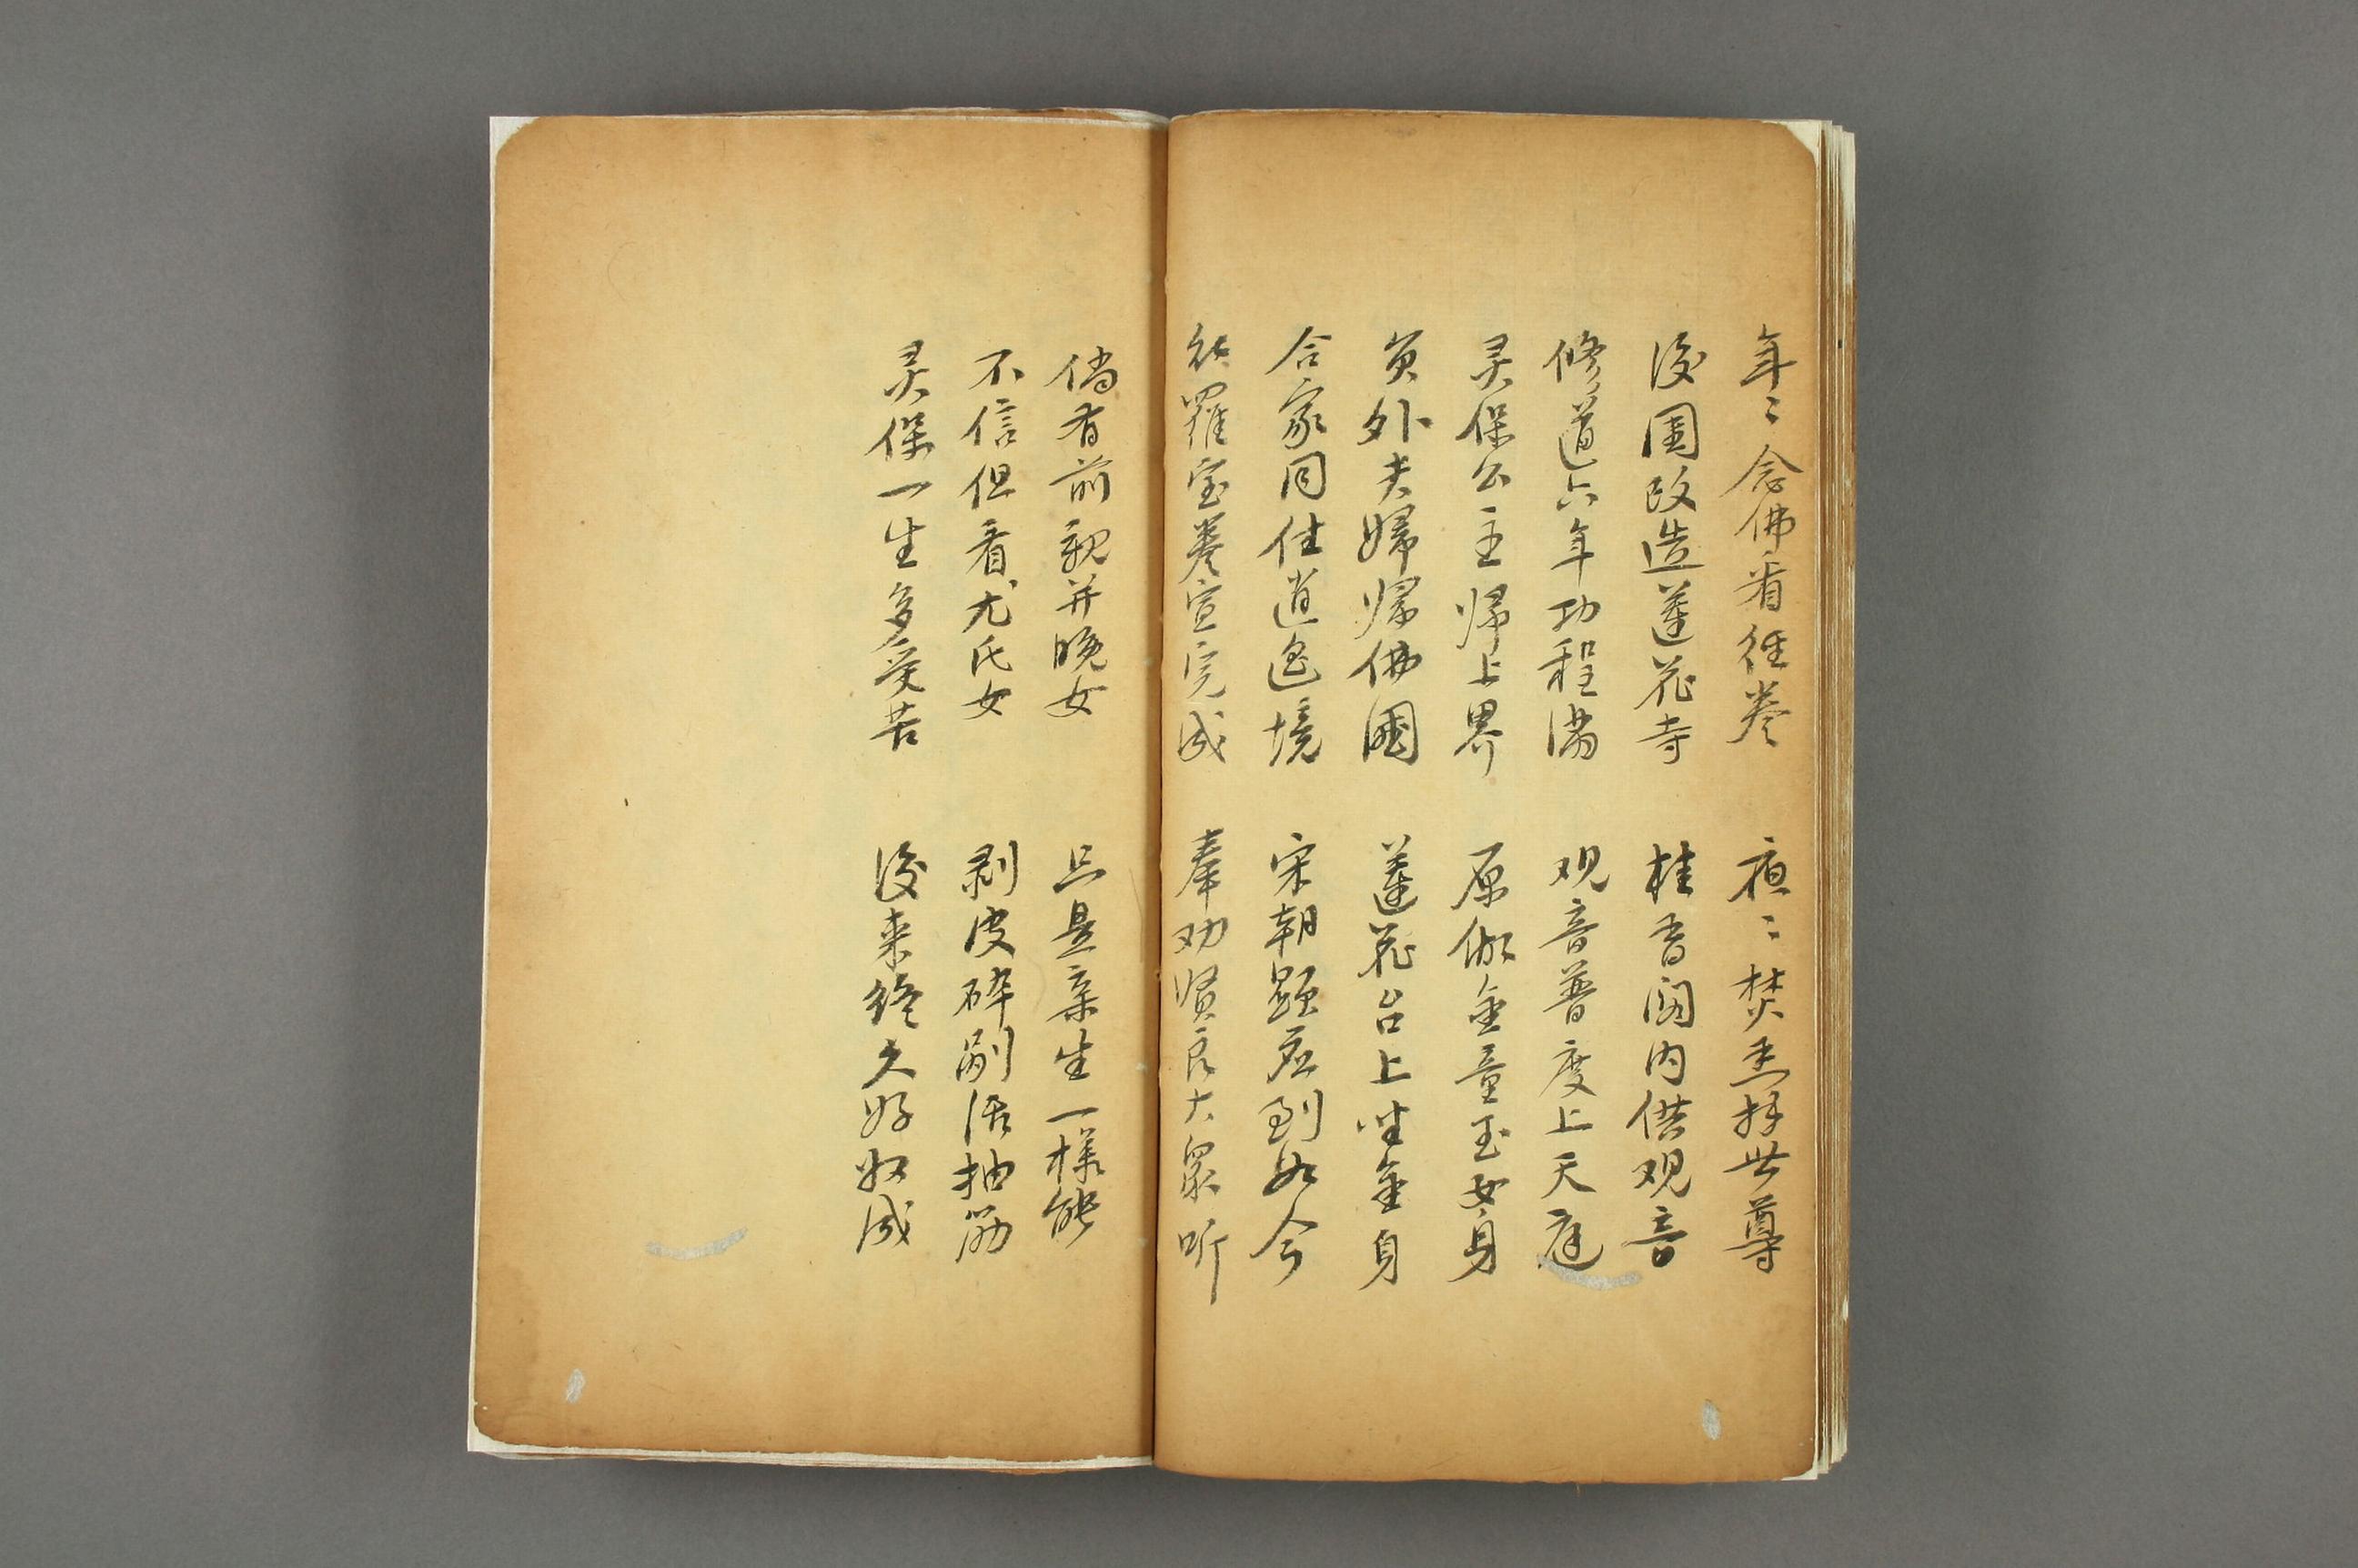 年〻念佛看经卷　夜〻焚香拜世尊
後園改造蓮花寺　桂香阁内供观音
修道六年功程满　观音普度上天庭
灵保公主归上界　原做金童玉女身
员外夫婦归佛國　蓮花台上坐金身
合家同住逍遥境　宋朝顕应到如今
羅宝卷宣完成　奉劝贤良大众听
倘有前親并晚女　只是亲生一様能
不信但看尤氏女　剥皮碎剐活抽筋
灵保一生多受苦　後来终久好収成